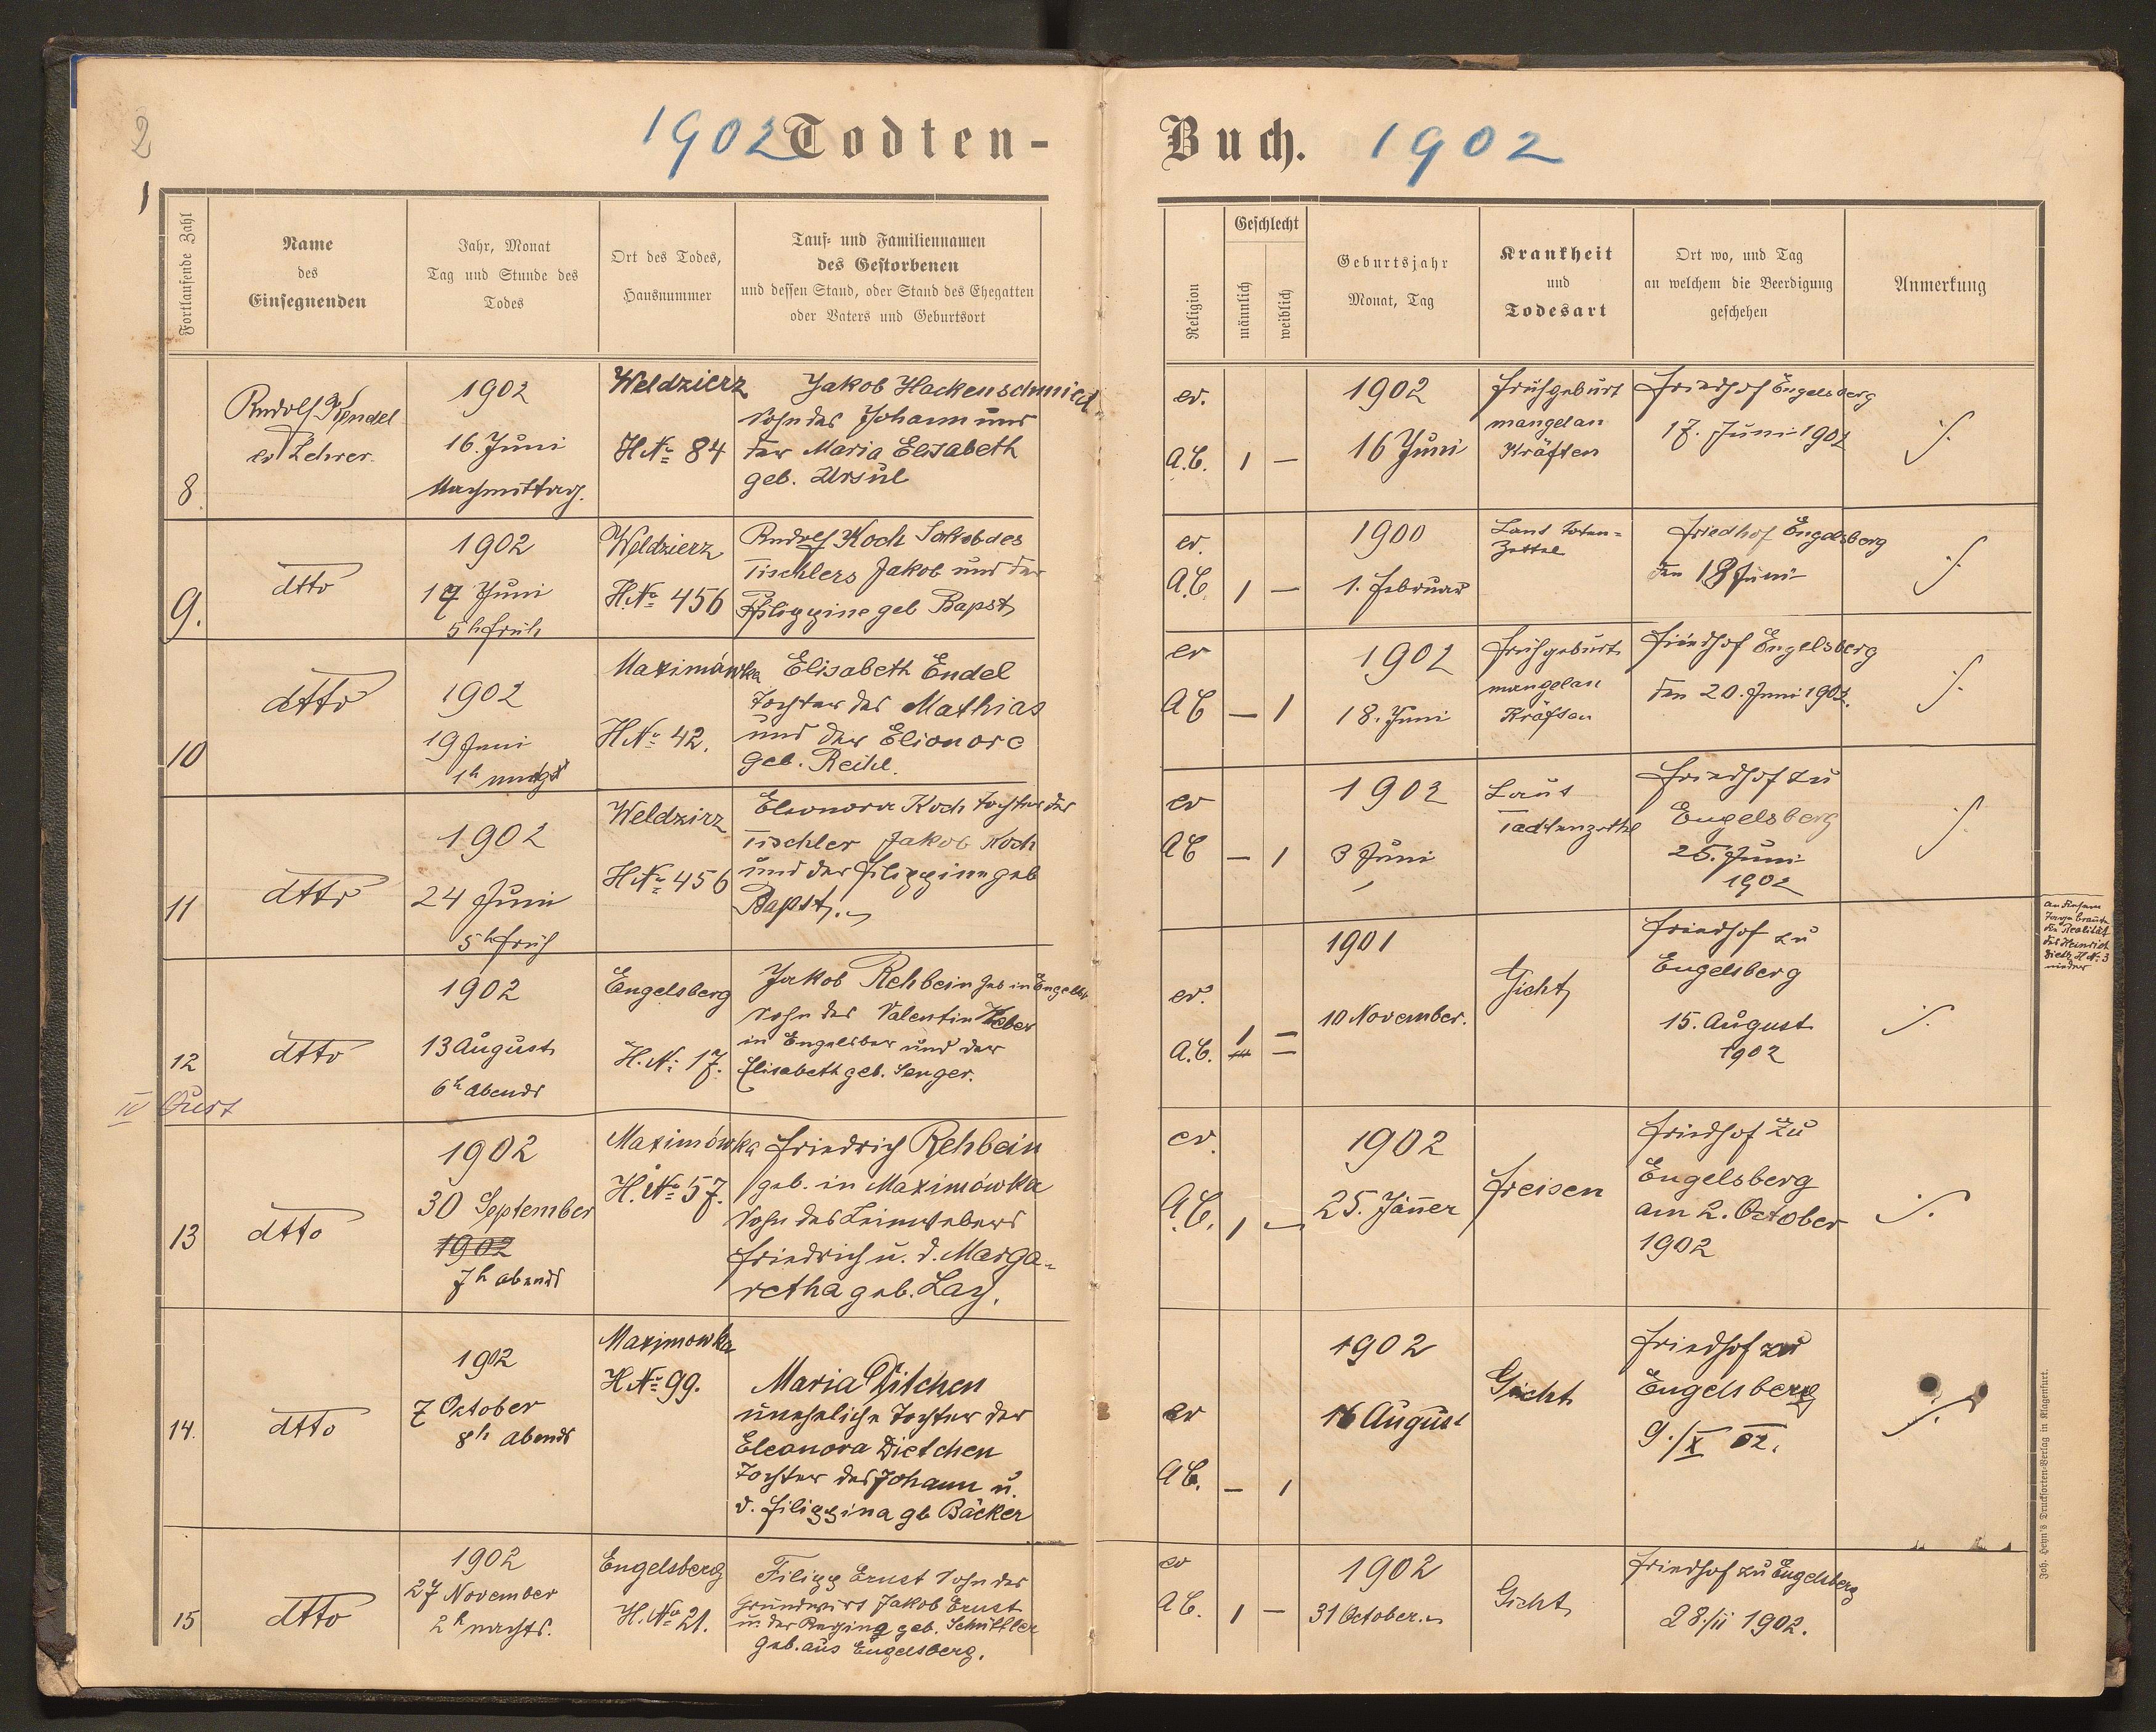 2
1902 Todten-
1
Fortlaufende Zahl
Name
des
Einsegnenden
Jahr, Monat
Tag und Stunde des
Todes
Ort des Todes,
Hausnummer
Tauf- und Familiennamen
des Gestorbenen
und dessen Stand, oder Stand des Ehegatten
oder Vaters und Geburtsort
8.
Rudolf
ev Lehrer.
1902
16. Juni
Nachmittag.
Weldzierz
H.No 84
Jakob Hackenschmied
Sohn des Johann und
der Maria Elisabeth
geb. Ursul
9.
dtto
1902
17 Juni
5h früh
Weldzierz
H.No 456
Rudolf Koch Sohn des
Tischlers Jakob und der
Filippine geb Bapst
10
dtto
1902
19 Juni
1h
Maximówka
H.No 42.
Elisabeth Endel
Tochter des Mathias
und der Elionore
geb. Reihl.
11
dtto
1902
24 Juni
5h früh
Weldzirz
H.No 456
Eleonora Koch Tochter des
Tischler Jakob Koch
und der Filippine geb
Bapst.
12
dtto
1902
13 August
6h abends
Engelsberg
H.No 17.
Jakob Rehbein geb in Engelsb
Sohn des Valentin
in Engelsber und der
Elisabeth geb. Senger.
IV Quart
13
dtto
1902
30 September
1902
7h abends
Maximówka
H.No 57.
Friedrich Rehbein
geb. in Maximówka
Sohn des Leinwebers
Friedrich u. d. Marga-
retha geb. Lay.
14.
dtto
1902
7 Oktober
8h abends
Maximowka
H.No 99.
Maria Ditchen
uneheliche Tochter der
Eleonora Dietchen
Tochter des Johann u.
d. Filippina gb Bäcker
15
dtto
1902
27 November
2h nachts.
Engelsberg
H.No 21.
Filipp Ernst Sohn des
Grundwirt Jakob Ernst
u der Regina geb. Schüttler
Geb. aus Engelsberg.
Buch. 1902
Religion
Geschlecht
männlich
weiblich
Geburtsjahr
Monat, Tag
Krankheit
und
Todesart
Ort wo, und Tag
an welchem die Beerdigung
geschehen
Anmerkung
ev.
A.C.
1 —
1902
16 Juni
Frühgeburt
mangel an
Kräften
Friedhof Engelsberg
17. Juni 1902
ev.
A.C.
1 —
1900
1. Februar
Laut Toten-
Zettel
Friedhof Engelsberg
den 18 Juni
ev
A C
— 1
1902
18. Juni
Frühgeburt
mangel an
Kräften
Friedhof Engelsberg
den 20. Juni 1902.
ev
AC
— 1
1902
3 Juni
Laut
Todtenzettel
Friedhof zu
Engelsberg
25. Juni
1902
ev.
A.C.
1 —
1901
10 November.
Gicht
Friedhof zu
Engelsberg
15. August
1902
an diesem
Tage brannte
die Realität
des Heinrich
H No 3
nieder
ev.
A.C.
1 —
1902
25. Jänner
Freisen
Friedhof zu
Engelsberg
am 2. October
1902
ev
AC.
— 1
1902
16 August
Gicht
Friedhof zu
Engelsberg
9./X 02.
ev
A C.
1 —
1902
31 October.
Gicht
Friedhof zu Engelsberg
28./ii 1902.
Joh. Heyn's Drucksorten-Verlag in Klagenfurt.